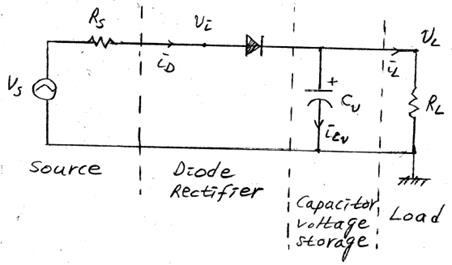 Rs
Vi
VL
iD
iL
Vs
+
Cv
RL
iCv
Source
Diode
Rectifier
Capacitor
voltage
storage
Load